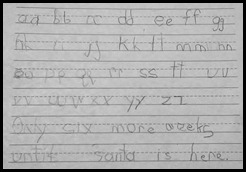 aa bb cc dd ee ff gg
hh ii jj kk ll mm nn
oo pp qq rr ss tt uu
vv ww xx yy zz
Only six more weeks
until Santa is here.